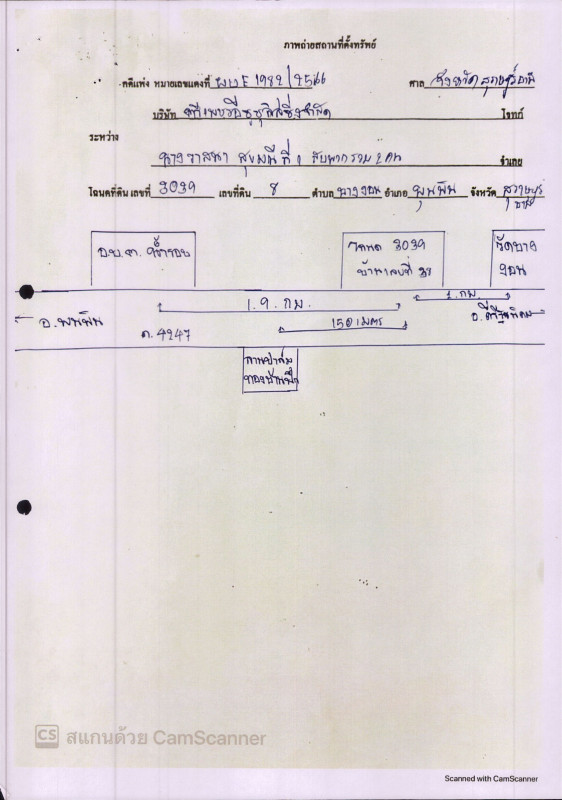 ภาพถ่ายสถานที่ตั้งทรัพย์
คดีแพ่ง หมายเลขแดงที่ ผบE 1982/2566 ศาล จังหวัดสุราษฎร์ธานี
บริษัท โจทก์
ระหว่าง
นางวาสนา ที่ 1 กับพวกรวม 2 คน จำเลย
โฉนดที่ดิน เลขที่ 3039 เลขที่ดิน 8 ตำบล บางงอน อำเภอ พุนพิน จังหวัด สุราษฎร์ธานี
อบต.
โฉนด 3039
บ้านเลขที่
วัดบางงอน
1.9 กม.
1 กม.
อ.พุนพิน
150 เมตร
อ.คีรีรัฐนิคม
ถ.4247
ลานปาล์ม
CS สแกนด้วย CamScanner
Scanned with CamScanner